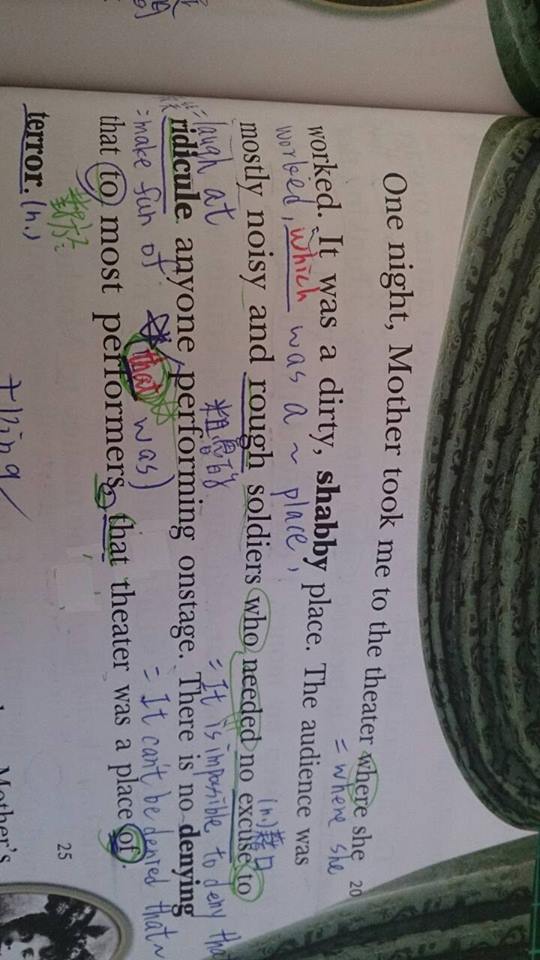 One night, Mother took me to the theater where she
= where she
20
worked. It was a dirty, shabby place. The audience was
worked, which was a ~ place,
(n)藉口
mostly noisy and rough soldiers who needed no excuse to
= laugh at
粗魯的
= It is impossible to deny tha
ridicule anyone performing onstage. There is no denying
= make fun of
(that was)
= It can't be denied that~
that to most performers, that theater was a place of
對於
25
terror. (n.)
Mother's